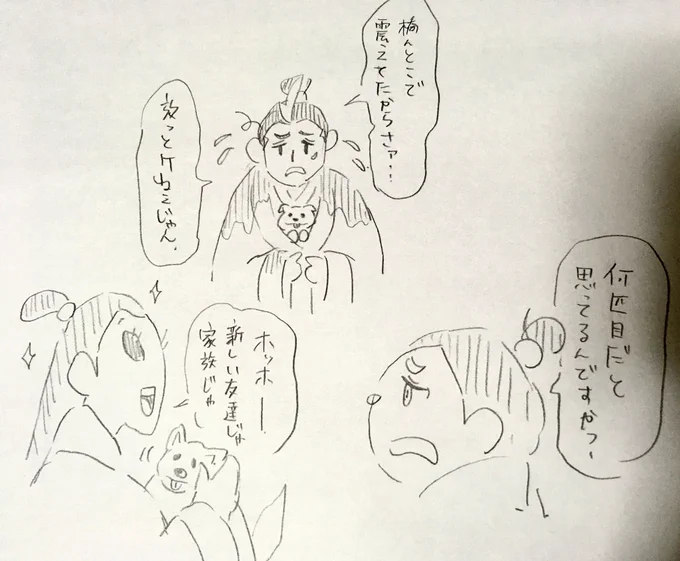 橋んとこで
震えてたからさァ…
放っとけねェじゃん。
何匹目だと
思ってるんですかっ
ホッホー
新しい友達じゃ
家族じゃ